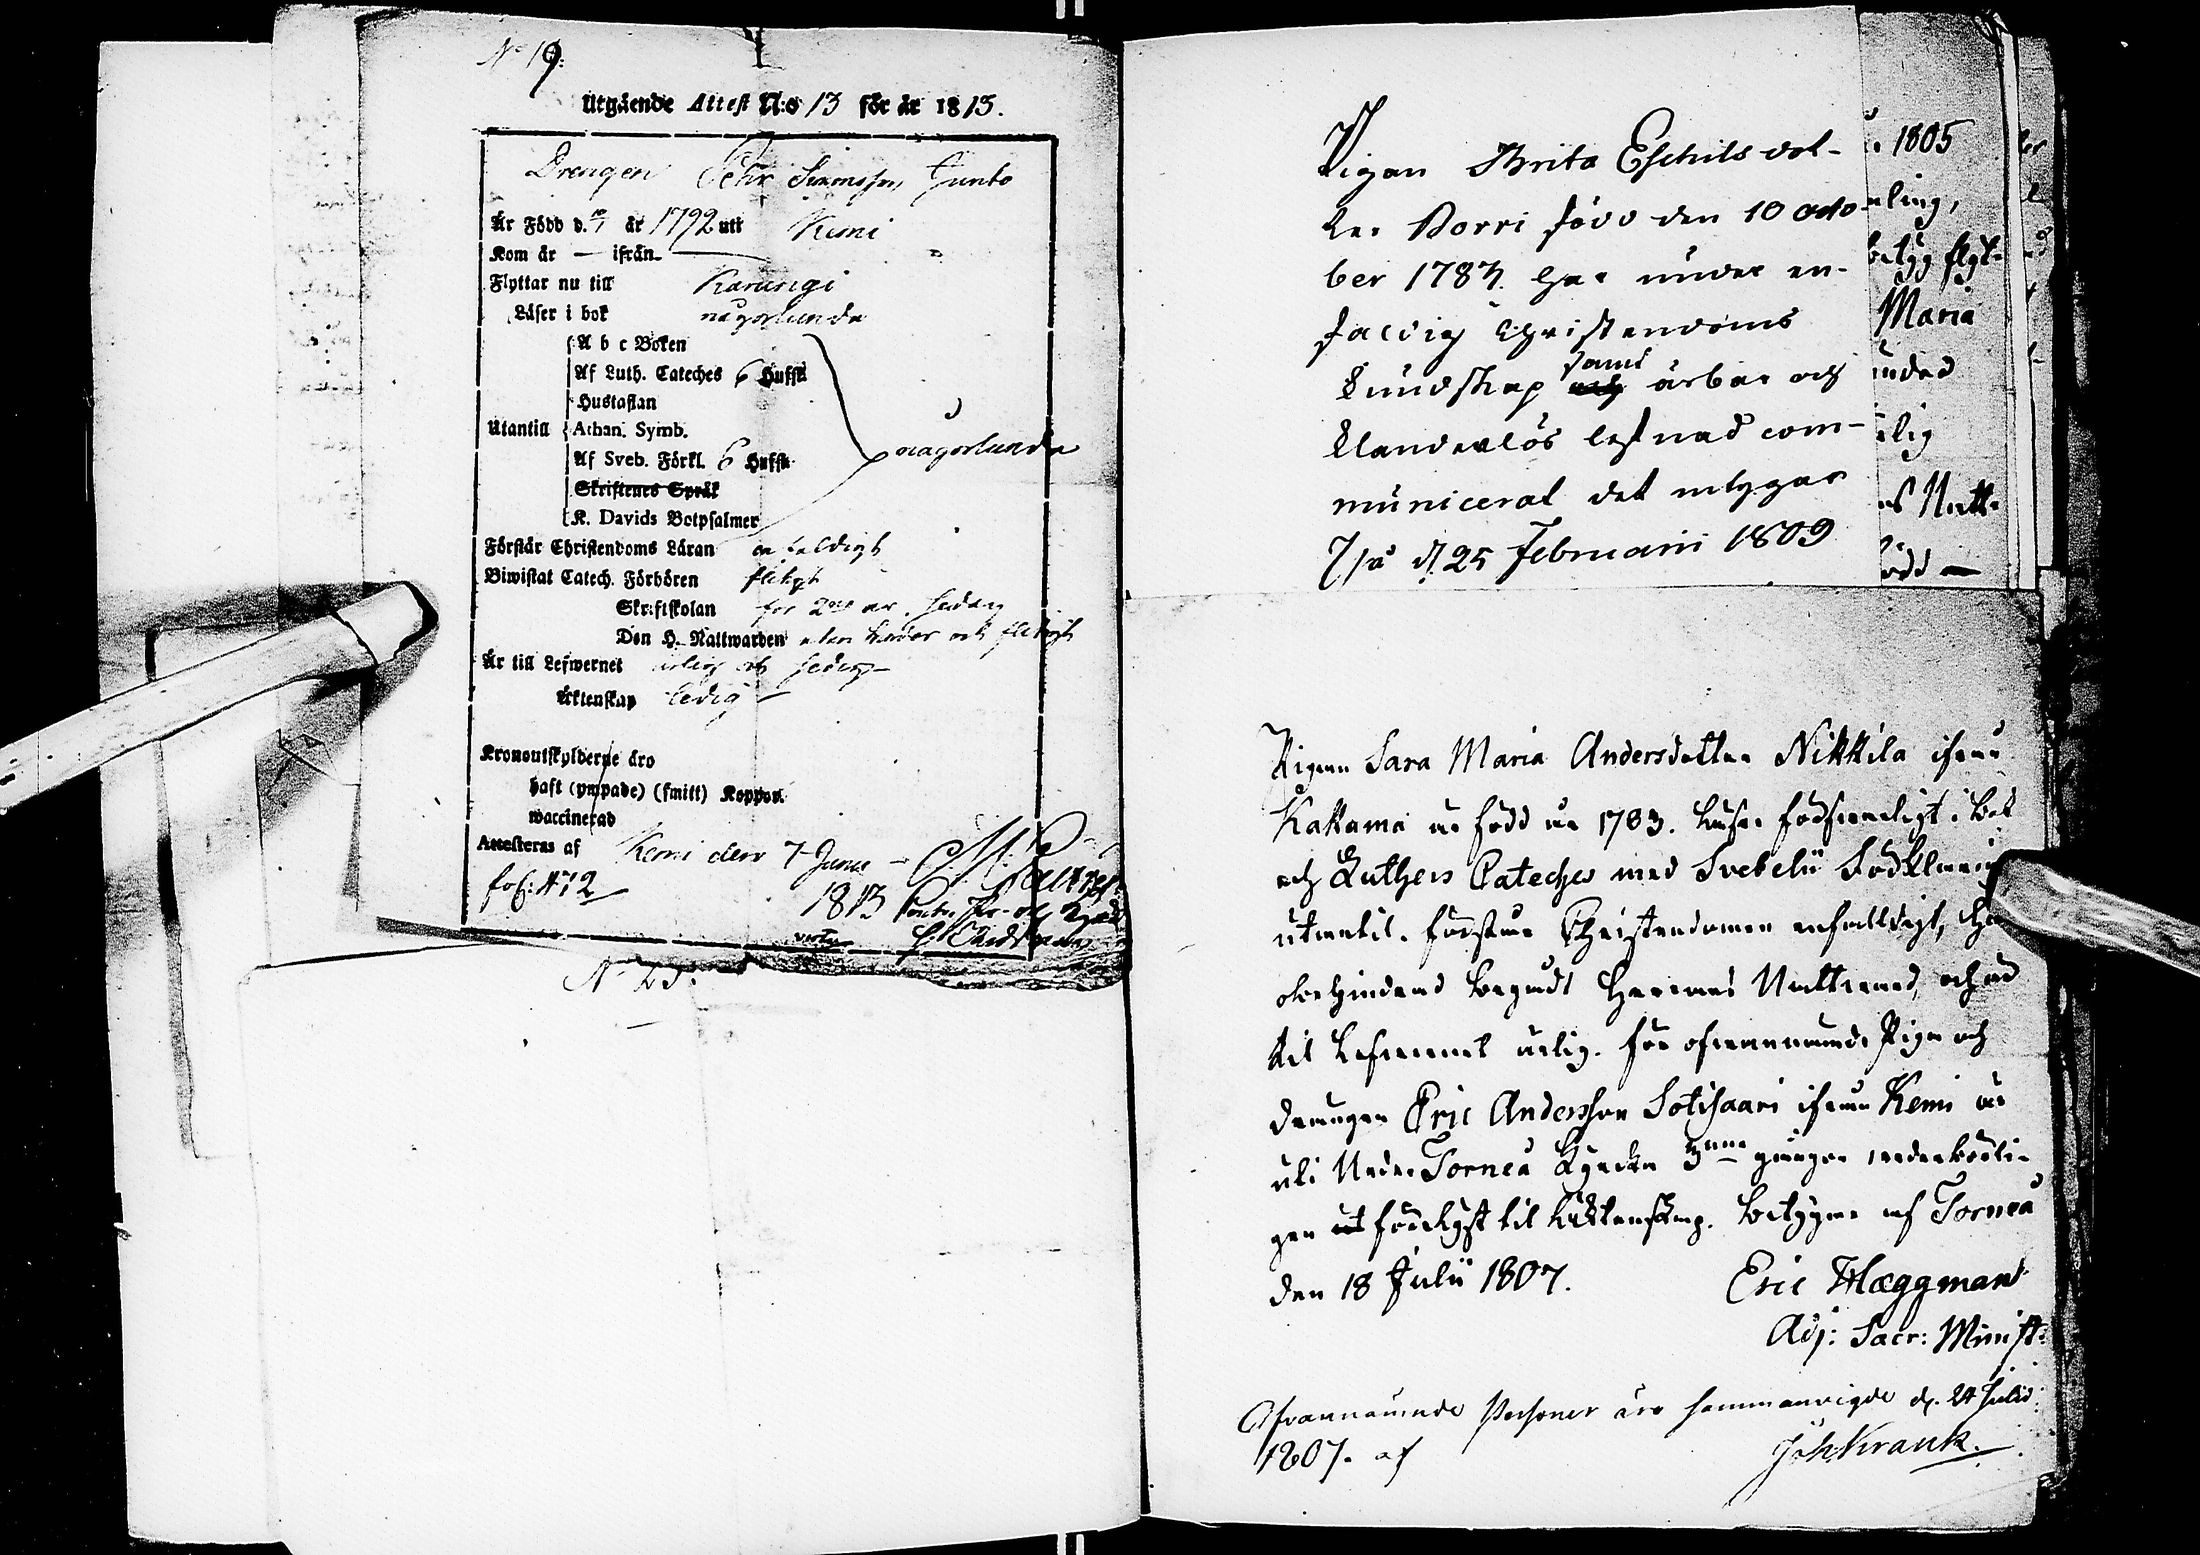 No 19.
Utgående Attest N:o 13 för år 1813.
Drengen Pehr Simonsson Junto
Är Född d. år 1792 utt Kemi
Kom år — ifrån —
Flyttar nu till Karungi
Läser i bok någorlunda
A b c Boken
Af Luth. Cateches 6 Hufst
Hustaflan
Utantill Athan. Symb. någorlunda
Af Sveb. Förkl. 6 Hufst.
Skriftenes Språk
K. Davids Botpsalmer
Förstår Christendoms Läran enfaldigt
Biwistat Catech. Förhören flitigt
Skriftskolan för 2 år sedan
Den H. Nattwarden utan hinder och flitigt
Är till Lefwernet ärlig och sedig
Äktenskap ledig
Kronoutskylderne äro
haft (ympade) (smitt) Koppor.
waccinerad
Attesteras af Kemi den 7 Junii
fol: 472
1813
verte
No 23.
Pigan Brita Eschilsdot-
ter Porri född den 10 octo-
ber 1787. har under en-
faldig Christendoms
samt
Kundskap och ärbar och
klanderlös lefnad com-
municerat det intygar
d. 25 Februarii 1809
1805
ling,
betyg flyt-
Maria
Natt-
Pigan Sara Maria Andersdotter Nikkila ifrån
Kakkama är född år 1783. läser försvarligt i bok
och Luthers Cateches med Svebelii Förklaring
utantil. förstår Christendomen enfalldigt, har
obehindrad begådt Herrans Nattvard, och är
til Lefvernet ärlig. för ofvannämnde Piga och
drängen Eric Andersson Sotisaari ifrån Kemi är
uti Neder Torneå Kyrcka 3nne gånger vederbörli-
gen ut förelyst til Ecktenskap. betygar af Torneå
den 18 Julii 1807. Eric Hæggman
Adj: Sacr: Minist:
Ofvannämnde Personer äro sammanvigde d. 24 Julii
1807. af Joh Wrank.